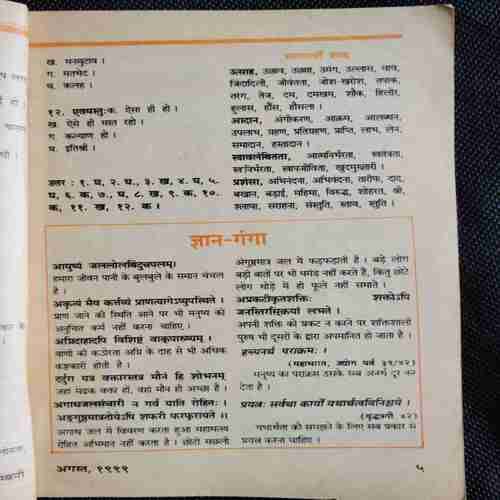 ख. मनमुटाव ।
ग. मतभेद ।
घ. कलह ।
१२. एवमस्तु:क. ऐसा ही हो ।
ख. ऐसे ही मस्त रहो ।
ग. कल्याण हो ।
घ. इतिश्री ।
उत्तर : १. घ, २. घ., ३. ख, ४. घ, ५.
घ, ६. क, ७., घ, ८. ख, ९. क, १०.
क, ११. ख, १२. क ।
समानार्थी शब्द
उत्साह, उछाव, उछाह, उमंग, उल्लास, चाव,
जिंदादिली, जीवंतता, जोश-खरोश, तपाक,
तरंग, तेज, दम, दमखम, शौक, हिलोर,
हुलास, हौंस, हौसला ।
आदान, अंगीकरण, आक्रम, आलम्भन,
उपलाभ, ग्रहण, प्रतिग्रहण, प्राप्ति, लाभ, लेन,
समादान, हस्तादान ।
स्वावलंबिता, आत्मनिर्भरता, स्वतंत्रता,
स्वनिर्भरता, स्वोपजीविता, खुदमुख्तारी ।
प्रशंसा, अभिनंदना, अभिवंदना, तारीफ, दाद,
बखान, बड़ाई, महिमा, विरुद्ध, शोहरत, श्री,
श्लाघा, सराहना, संस्तुति, स्ताव, स्तुति ।
ज्ञान-गंगा
आयुष्यं जललोलबिंदुचपलम्।
हमारा जीवन पानी के बुलबुले के समान चंचल
है ।
अकृत्यं नैव कर्त्तव्यं प्राणत्यागेऽप्युपस्थिते ।
प्राण जाने की स्थिति आने पर भी मनुष्य को
अनुचित कर्म नहीं करना चाहिए ।
अग्निदाहादपि विशिष्टं वाक्पारुष्यम् ।
वाणी की कठोरता अग्नि के दाह से भी अधिक
कष्टकारी होती है ।
दर्दुरा यत्र वक्तारस्तत्र मौनं हि शोभनम्
जहां मेढक वक्ता हों, वहां मौन ही अच्छा है ।
अगाधजलसंचारी न गर्वं याति रोहितः ।
अङ्गुष्ठमात्रतोयेऽपि शफरी फरफुरायते ।।
अगाध जल में विचरण करता हुआ महामत्स्य
रोहित अभिमान नहीं करता है । छोटी मछली
अंगुष्ठमात्र जल में फड़फड़ाती है । बड़े लोग
बड़ी बातों पर भी घमंड नहीं करते हैं, किंतु छोटे
लोग थोड़े में ही फूले नहीं समाते ।
अप्रकटीकृतशक्तिः शक्तोऽपि
जनस्तिरस्क्रियां लभते ।
अपनी शक्ति को प्रकट न करने पर शक्तिशाली
पुरुष भी दूसरों के द्वारा अपमानित हो जाता है ।
हन्त्यनर्थं पराक्रमः ।
मनुष्य का पराक्रम उसके सब अनर्थ दूर कर
देता है ।
प्रयत्नः सर्वथा कार्यो यथार्थत्वविनिश्चये ।
यथार्थता को समझने के लिए सब प्रकार से
प्रयत्न करना चाहिए ।
अगस्त, १९९९
५